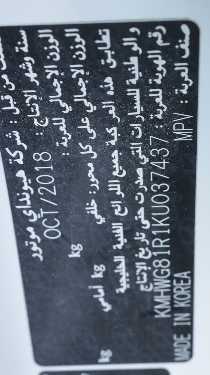 صنع من قبل : شركة هيونداي موتور
سنة وشهر الانتاج : OCT/2018
الوزن الإجمالي للعربة : kg
الوزن الإجمالي على كل محور: خلفي kg أمامي kg
تطابق هذه المركبة جميع اللوائح الفنية الخليجية
و الوطنية للسيارات التي صدرت حتى تاريخ الإنتاج
رقم الهوية للعربة : KMHWG81R1KU037437
صنف العربة : MPV MADE IN KOREA